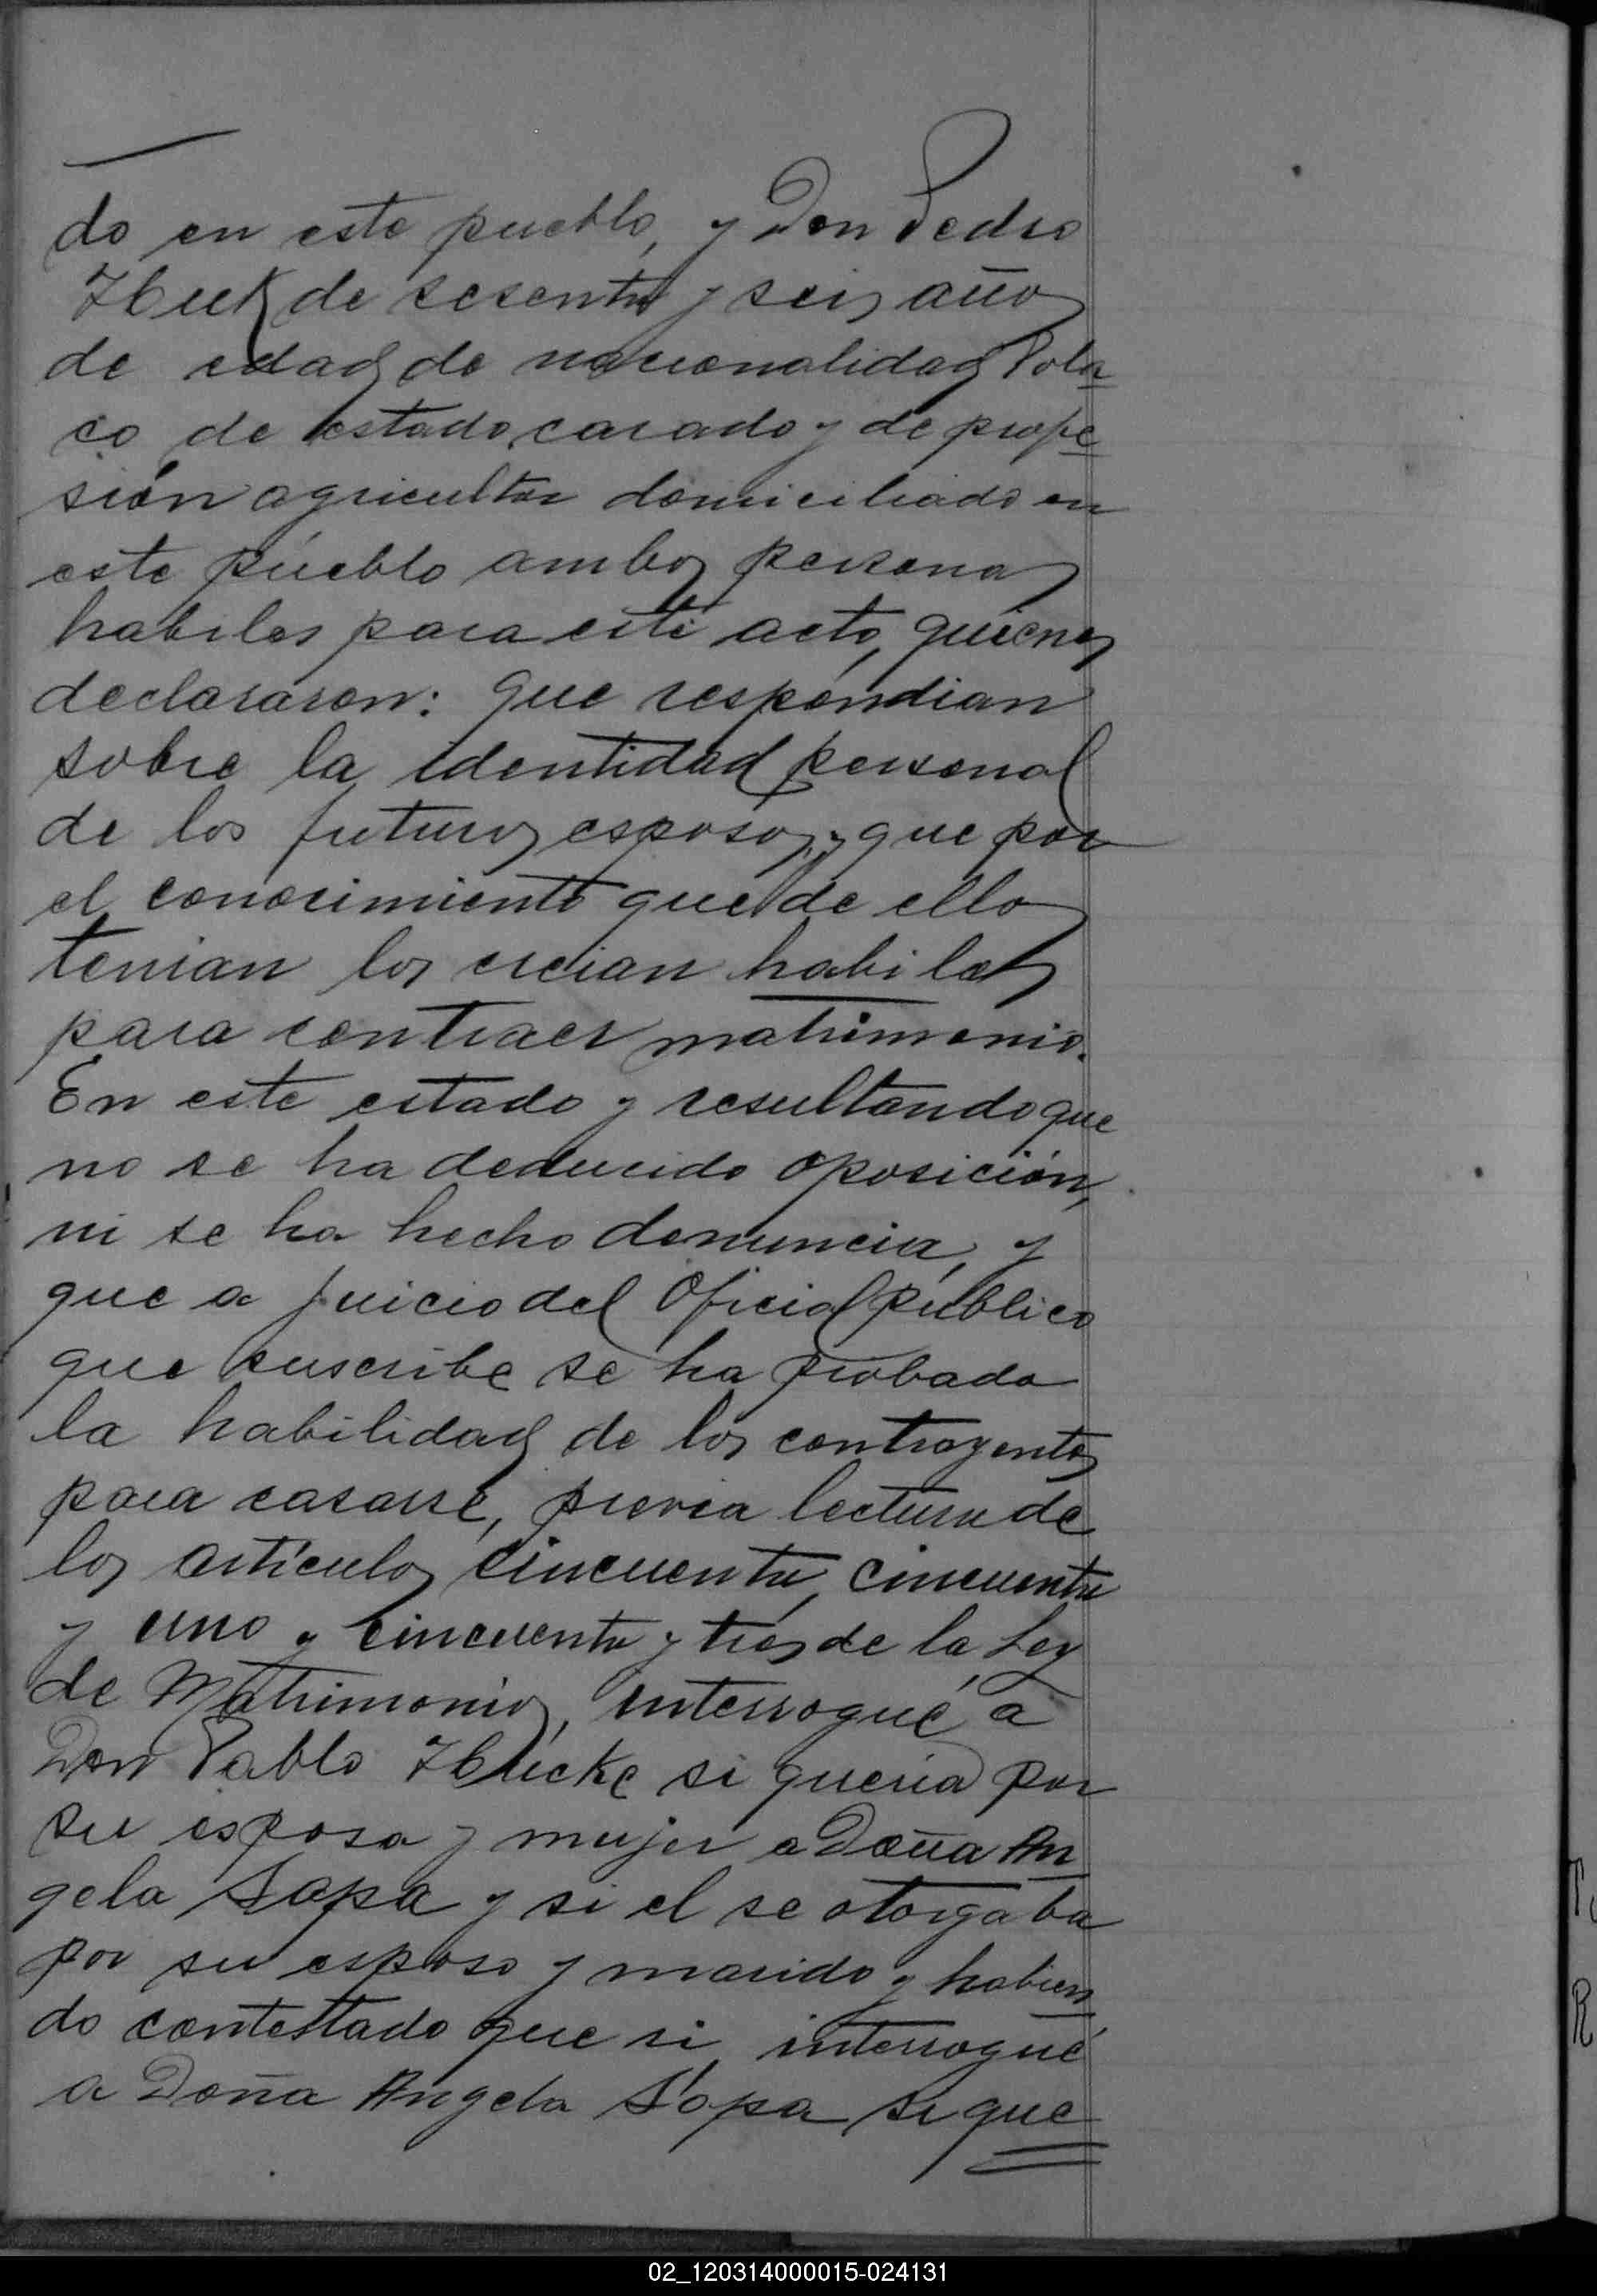 do en este pueblo, y Don Pedro
Huk de sesenta y seis años
de edad de nacionalidad Pola
co de estado casado y de profe
sión agricultor domiciliado en
este pueblo ambos personas
habiles para este acto, quienes
declararon: que respondian
sobre la identidad personal
de los futuros esposos, y que por
el conocimiento que de ellos
tenian los creian habiles
para contraer matrimonio.
En este estado y resultando que
no se ha deducido oposición,
ni se ha hecho denuncia, y
que a juicio del Oficial público
que suscribe se ha probado
la habilidad de los contrayentes
para casarse, previa lectura de
los artículos cincuenta, cincuenta
y uno y cincuenta y tres de la Ley
de Matrimonios, interrogué a
Don Pablo si queria por
su esposa y mujer a Doña An
gela Sapa y si el se otorgaba
por su esposo y marido y habien
do contestado que si interrogué
a Doña Angela Sopa si que
02_120314000015-024131